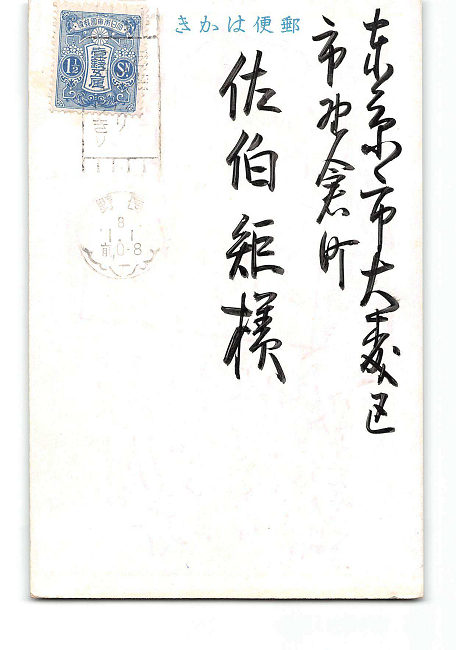 郵便はかき
東京市大森区
市野倉町
佐伯矩様
大日本帝國郵便
壹錢五厘
1½ Sn
8
1.1
前0-8